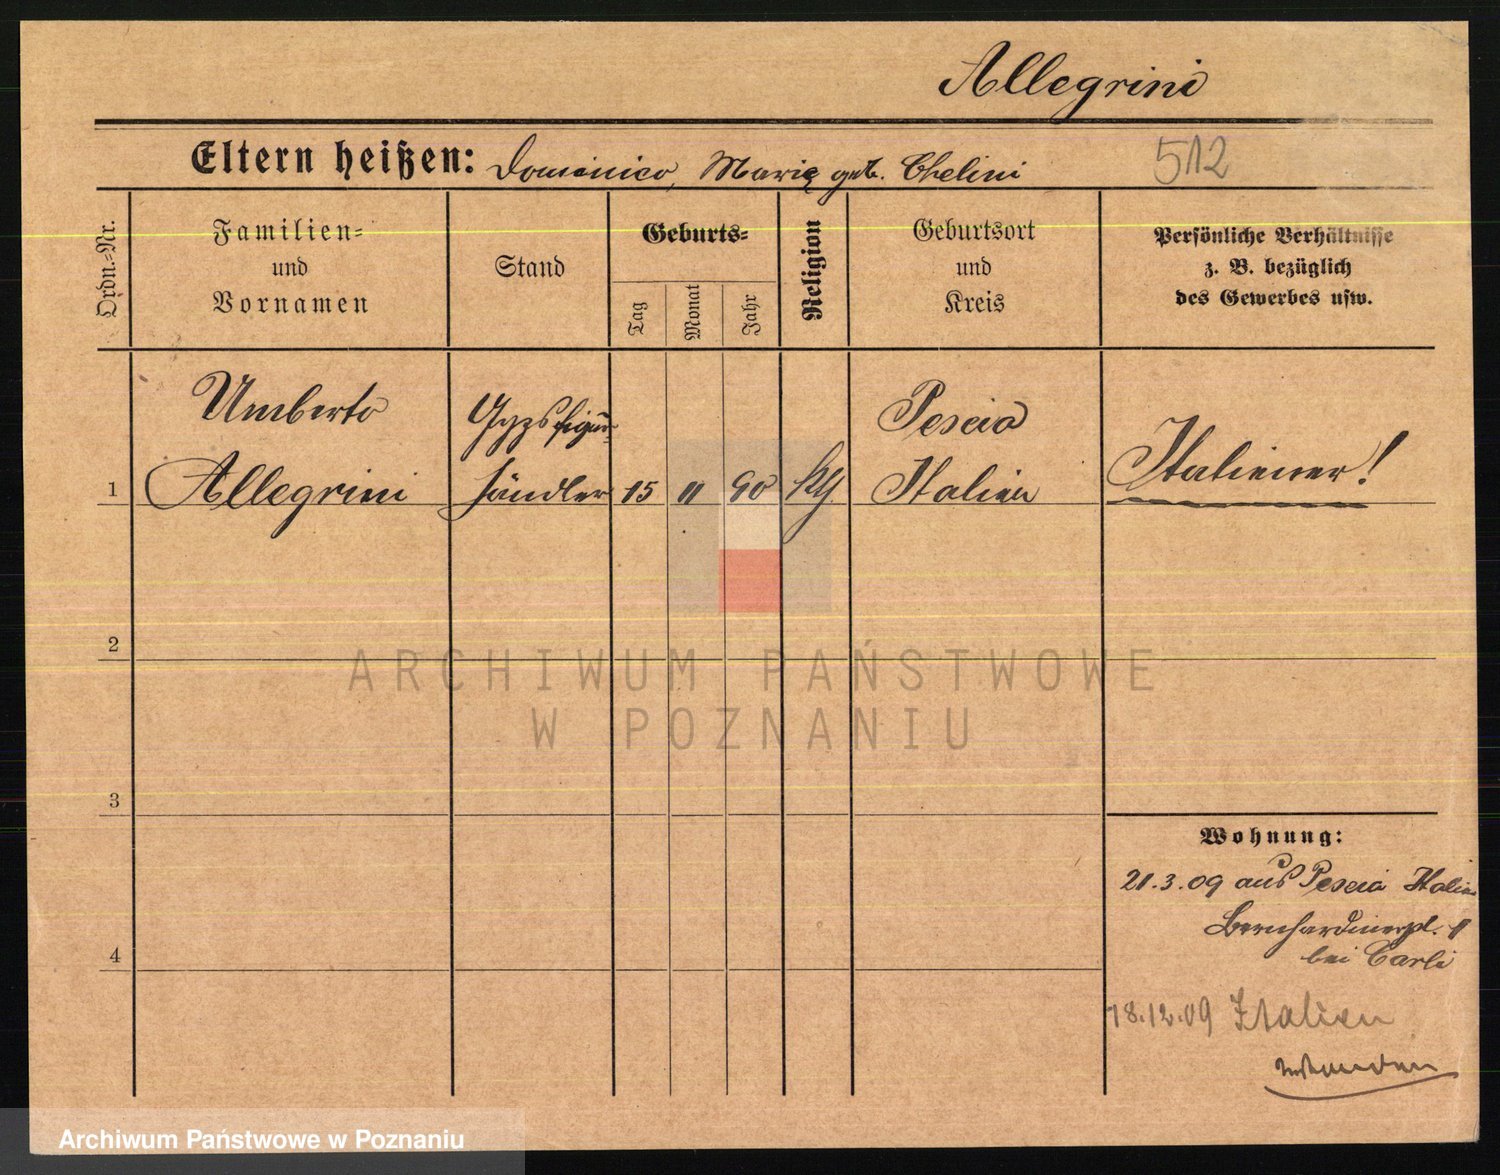 Allegrini
Eltern heißen: Dominico, Marie geb. Chelini 512
Ordn.=Nr.
Familien=
und
Vornamen
Stand
Geburts=
Tag
Monat
Jahr
Religion
Geburtsort
und
Kreis
Persönliche Verhältnisse
z. B. bezüglich
des Gewerbes usw.
Umberto Gypsfigur= Pescia
1 Allegrini händler 15 11 90 kth Italien Italiener!
2
ARCHIWUM PAŃSTWOWE
W POZNANIU
3
Wohnung:
21.3.09 aus Pescia Italien
Bernhardinerpl.
bei Carli
4
18.12.09 Italien
Archiwum Państwowe w Poznaniu